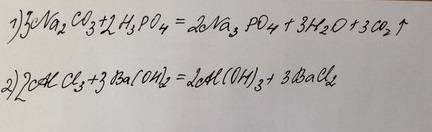 1) 3Na₂CO₃+2H₃PO₄=2Na₃PO₄+3H₂O+3CO₂↑
2) 2AlCl₃+3Ba(OH)₂=2Al(OH)₃+3BaCl₂